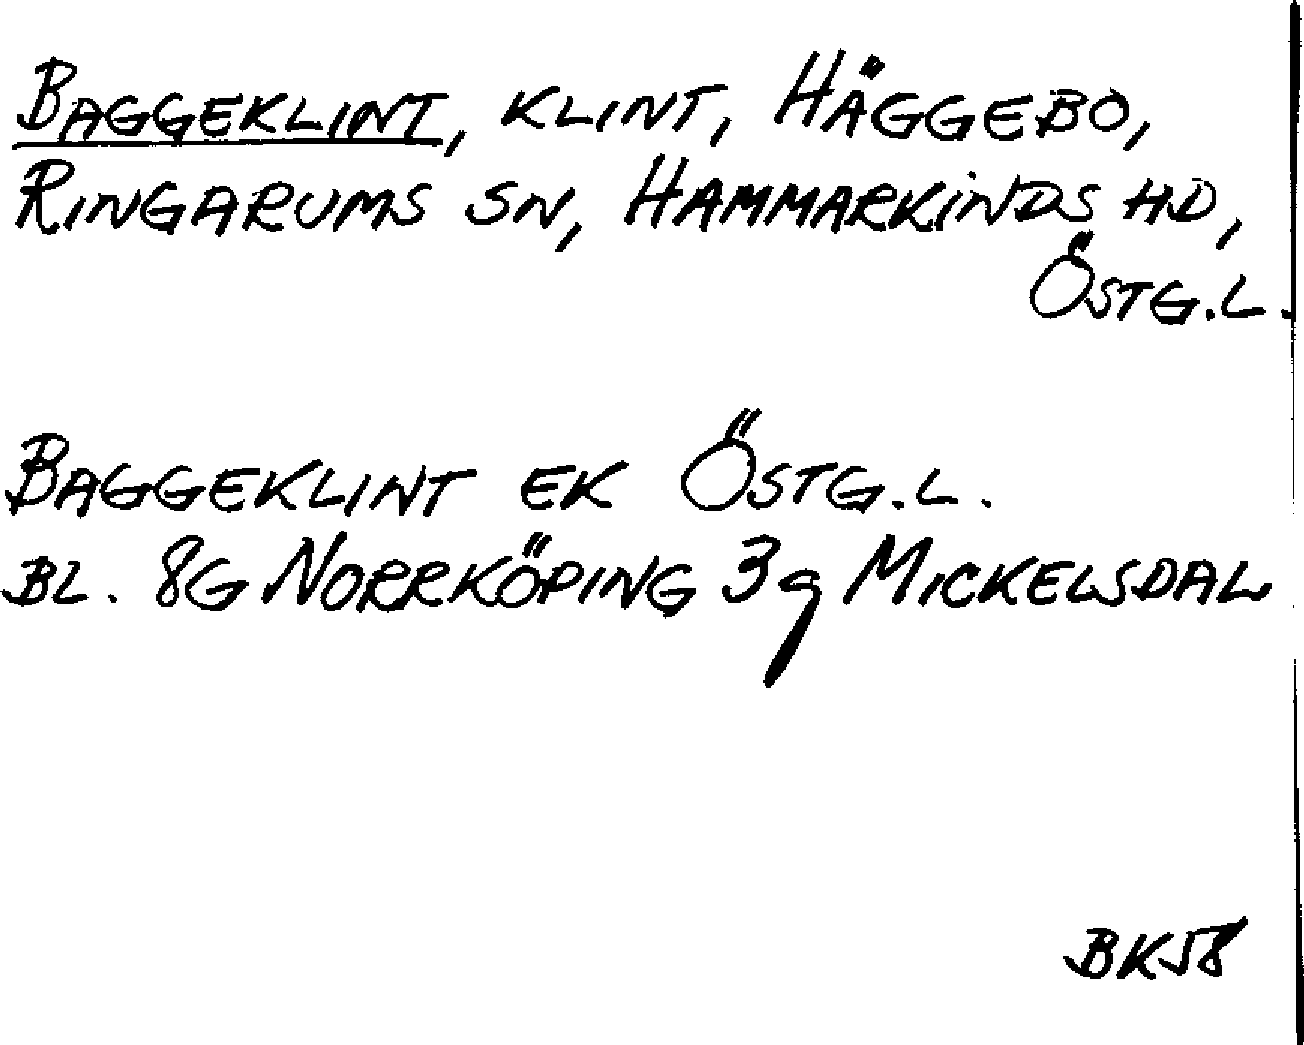 BAGGEKLINT, KLINT, HÄGGEBO,
RINGARUMS SN, HAMMARKINDS HD,
ÖSTG.L.
BAGGEKLINT EK ÖSTG.L.
BL. 8G NORRKÖPING 3g MICKELSDAL
BK58